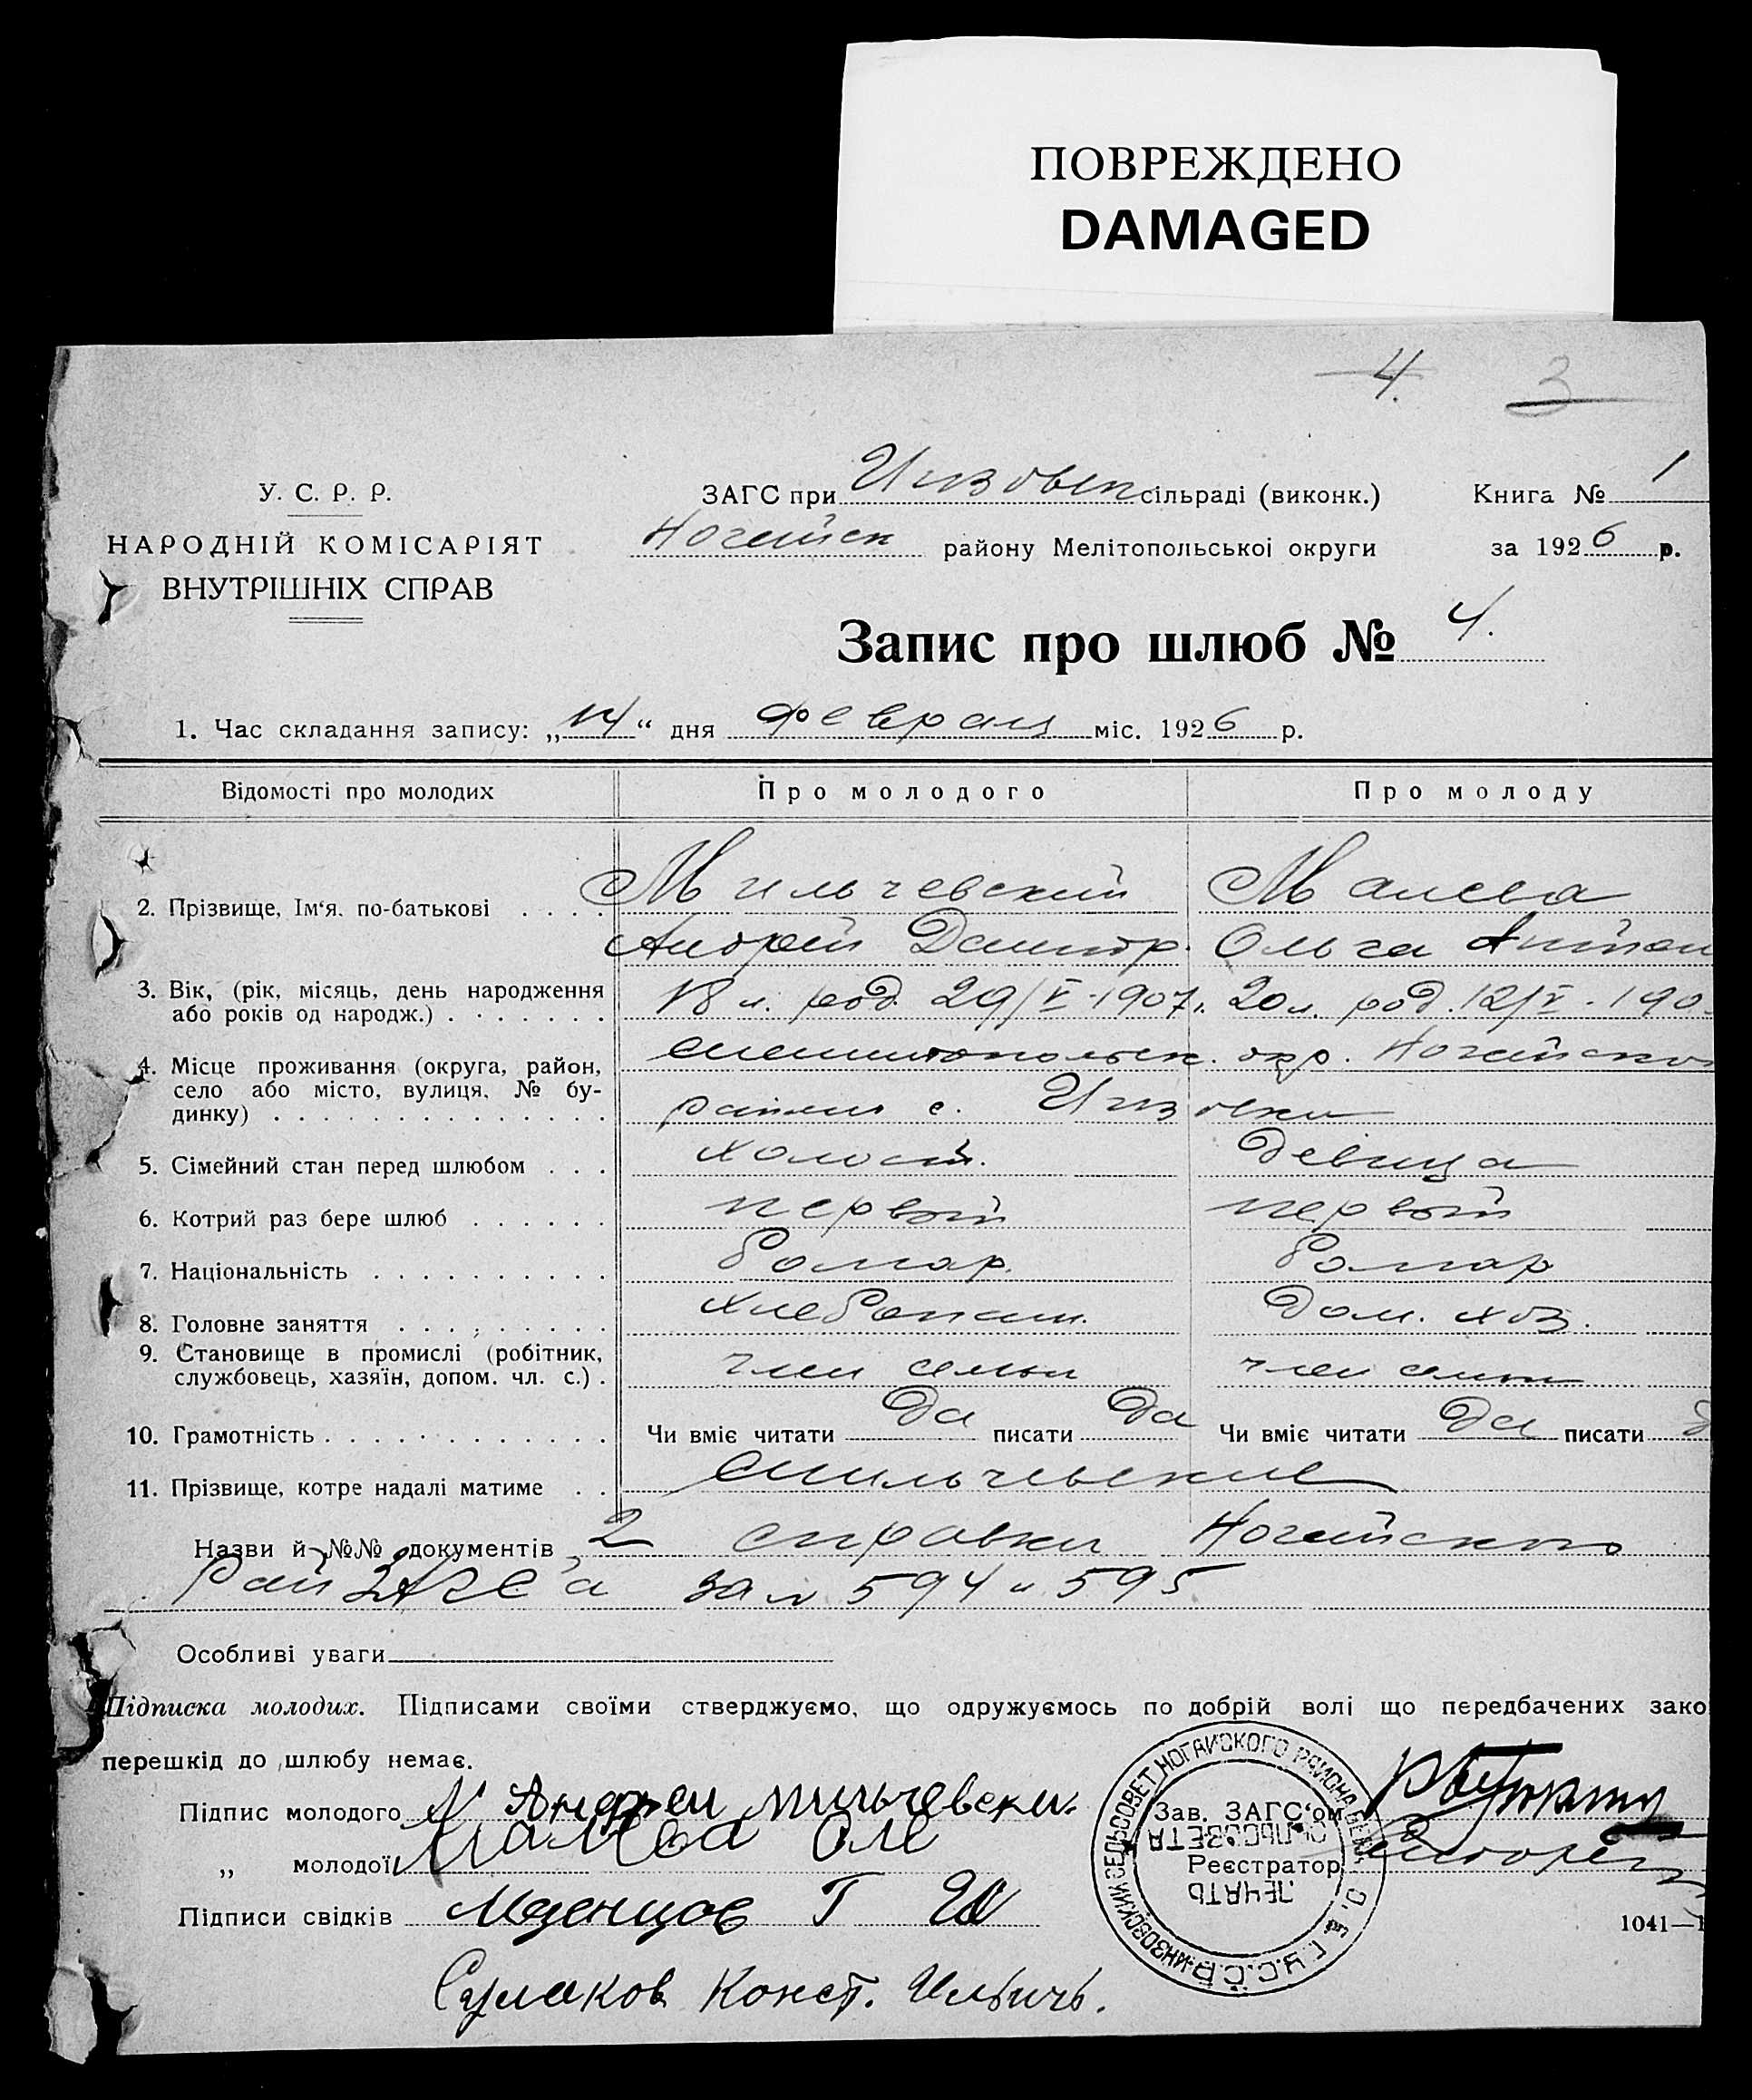 ПОВРЕЖДЕНО
DAMAGED
4. 3
У. С. Р. Р.
НАРОДНІЙ КОМІСАРІЯТ
ВНУТРІШНІХ СПРАВ
ЗАГС при Инзовск сільраді (виконк.) Книга № 1
Ногайск району Мелітопольської округи за 1926 р.
Запис про шлюб № 4.
1. Час складання запису: „14“ дня февраля міс. 1926 р.
Відомості про молодих Про молодого Про молоду
2. Прізвище, Ім'я. по-батькові . . . . Мильчевский Малева
Андрей Дмитр. Ольга Антон
3. Вік, (рік, місяць, день народження
або років од народж.) . . . . . . . 18 л. род. 29/V-1907г. 20 л. род. 12/V-190
4. Місце проживання (округа, район,
село або місто, вулиця, № бу-
динку) . . . . . . . . . . . . . . Мелитопольск. окр. Ногайского
района с. Инзовки
5. Сімейний стан перед шлюбом . . . холост. девица
6. Котрий раз бере шлюб . . . . . . первый первый
7. Національність . . . . . . . . . . болгар. болгар
8. Головне заняття . . . . . . . . . хлебопаш. дом. хоз.
9. Становище в промислі (робітник,
службовець, хазяїн, допом. чл. с.) . член семьи член семьи
10. Грамотність . . . . . . . . . . . . Чи вміє читати да писати да Чи вміє читати да писати д
11. Прізвище, котре надалі матиме . . Мильчевские
Назви й №№ документів 2 справки Ногайского
РайЗАГС'а за № 594 и 595
Особливі уваги
Підписка молодих. Підписами своїми стверджуємо, що одружуємось по добрій волі що передбачених зако
перешкід до шлюбу немає.
Підпис молодого Андреи Мильчевски
„ молодої Малева Оле
Підписи свідків Меденцов Г
Сулаков Конст. Ильичь.
Зав. ЗАГС'ом
Реєстратор
ИНЗОВСКИЙ СЕЛЬСОВЕТ НОГАЙСКОГО РАЙОНА
У.С.С.Р.
ПЕЧАТЬ
СЕЛЬСОВЕТА
1041—1